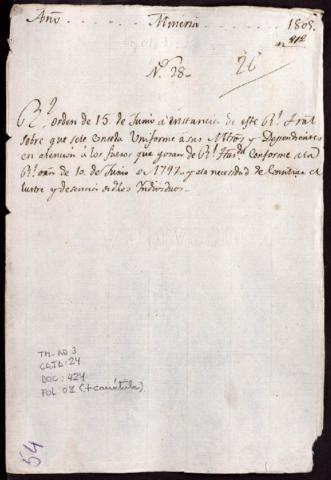 Año. Mineria. 1805.
nº 812
Nº 28.
26
Rl. orden de 15. de Junio á instancia de este Rl. Tral
sobre que sele conceda Uniforme á sus Mtros, y Dependientes
en atencion á los fueros que gozan de Rl. Hazda. conforme ála
Rl. orn. de 10. de Junio de 1797. y ala necesidad de
lustre y desencia de dhos Individuos.
TM-AD 3
CAJA: 24
DOC: 424
FOL 01 (+ carátula)
54